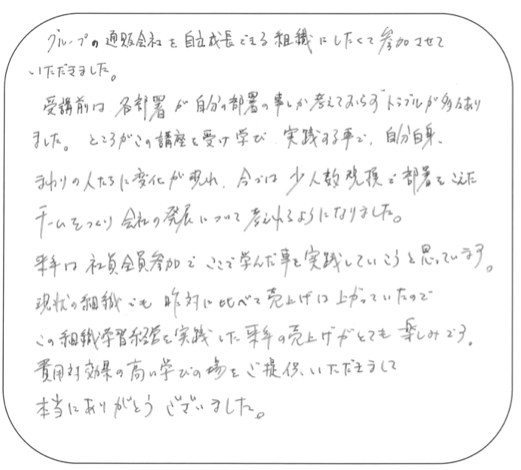 グループの通販会社を自立成長できる組織にしたくて参加させて
いただきました。
受講前は各部署が自分の部署の事しか考えておらずトラブルが多々あり
ました。ところがこの講座を受け学び 実践する事で、自分自身、
まわりの人たちに変化が現れ、今では少人数規模で部署をこえた
チームをつくり会社の発展について考えれるようになりました。
来年は社員全員参加でここで学んだ事を実践していこうと思っています。
現状の組織でも昨対に比べて売上げは上がっていたので
この組織学習経営を実践した来年の売上げがとても楽しみです。
費用対効果の高い学びの場をご提供いただきまして
本当にありがとうございました。